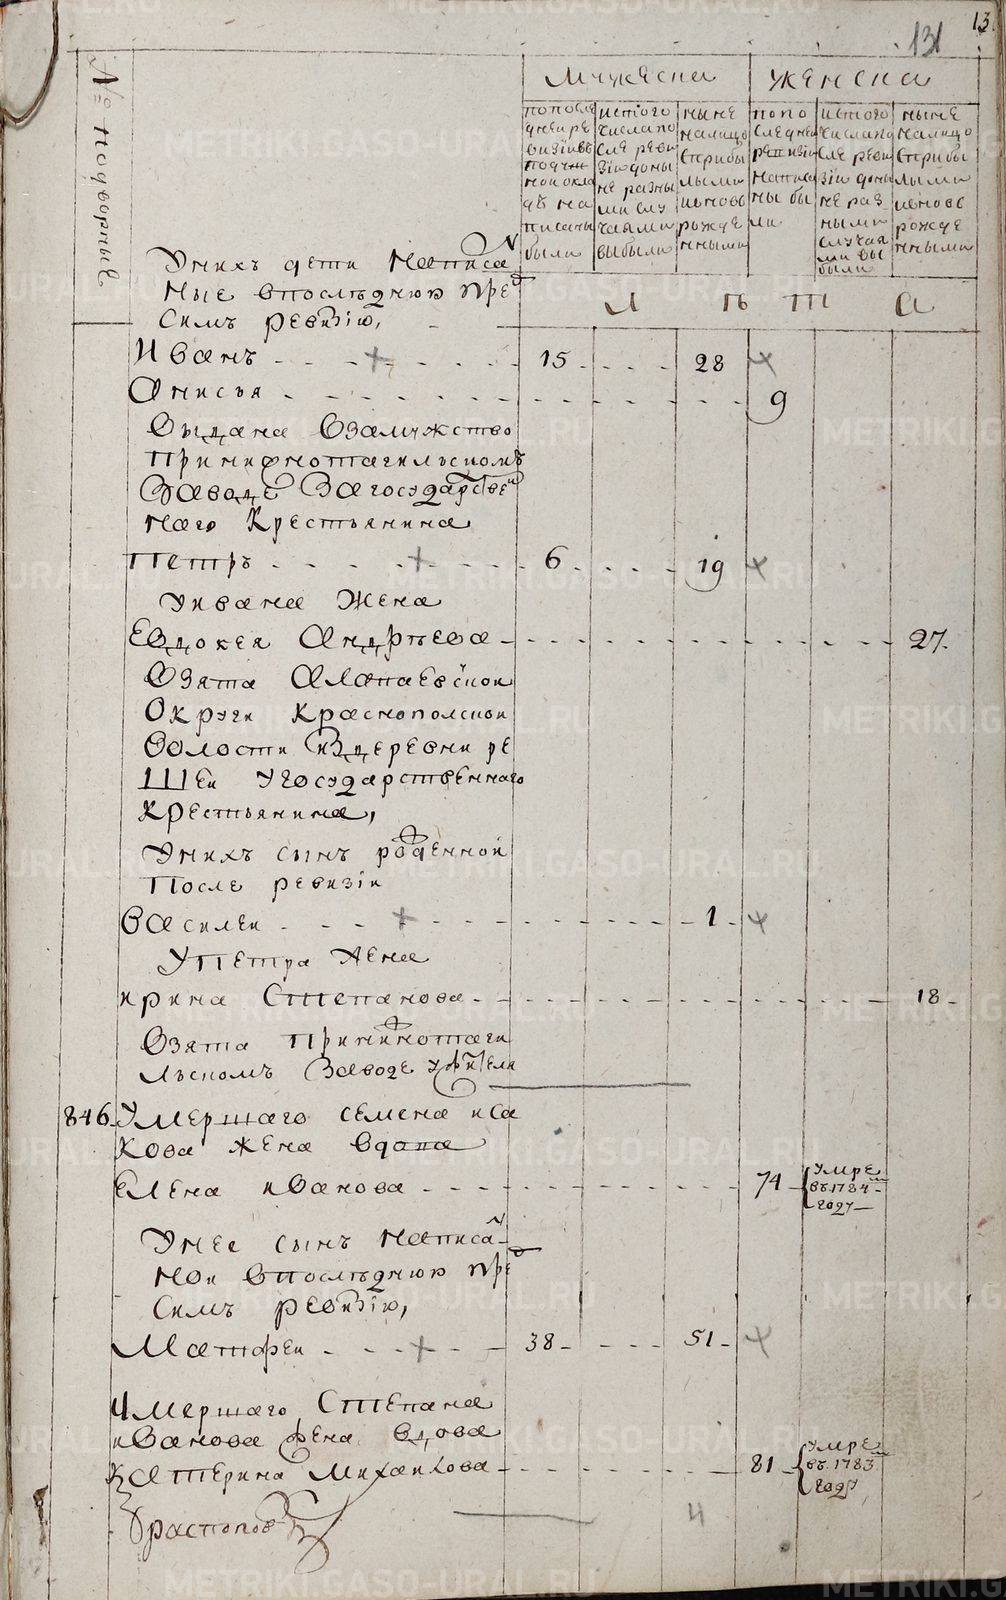 13
131
№ подворные
мужеска
женска
по после
дней ре
визiи въ
подуш
ной окла
дъ на
писаны
были
ис того
числа по
сле реви
зiи доны
не разны
ми слу
чаями
выбыли
ныне
налицо
с прибы
лыми
и вновь
рожде
нными
по по
следней
ревизiи
написа
ны бы
ли
ис того
числа по
сле реви
зiи доны
не раз
ными
случая
ми вы
были
ныне
налицо
с прибы
лыми
и вновь
рожде
нными
л ъ т а
У них дети написа
ные в последнюю пре
сим ревизiю,
Иванъ 15 28
Анисья 9
выдана взамужство
при нижнотагильском
заводе за государстве
наго крестьянина
Петръ 6 19
У ивана жена
Евдокея Андръева 27
взята Алапаевской
округи краснополской
волости из деревни ре
шеи у государственнаго
крестьянина,
У них сынъ рожденной
после ревизiи
василеи 1
У петра жена
ирина Степанова 18
взята при нижнотаги
льском заводе у жителя
846 Умершаго семена иса
кова жена вдова
Елена иванова 74 умре
въ 1784
году
У нее сынъ написа
ной в последнюю пре
симъ ревизiю,
Матфеи 38 51
Умершаго Степана
иванова жена вдова
Катерина михаилова 81 умре
въ 1783
году
4
Распопов
METRIKI.GASO-URAL.RU